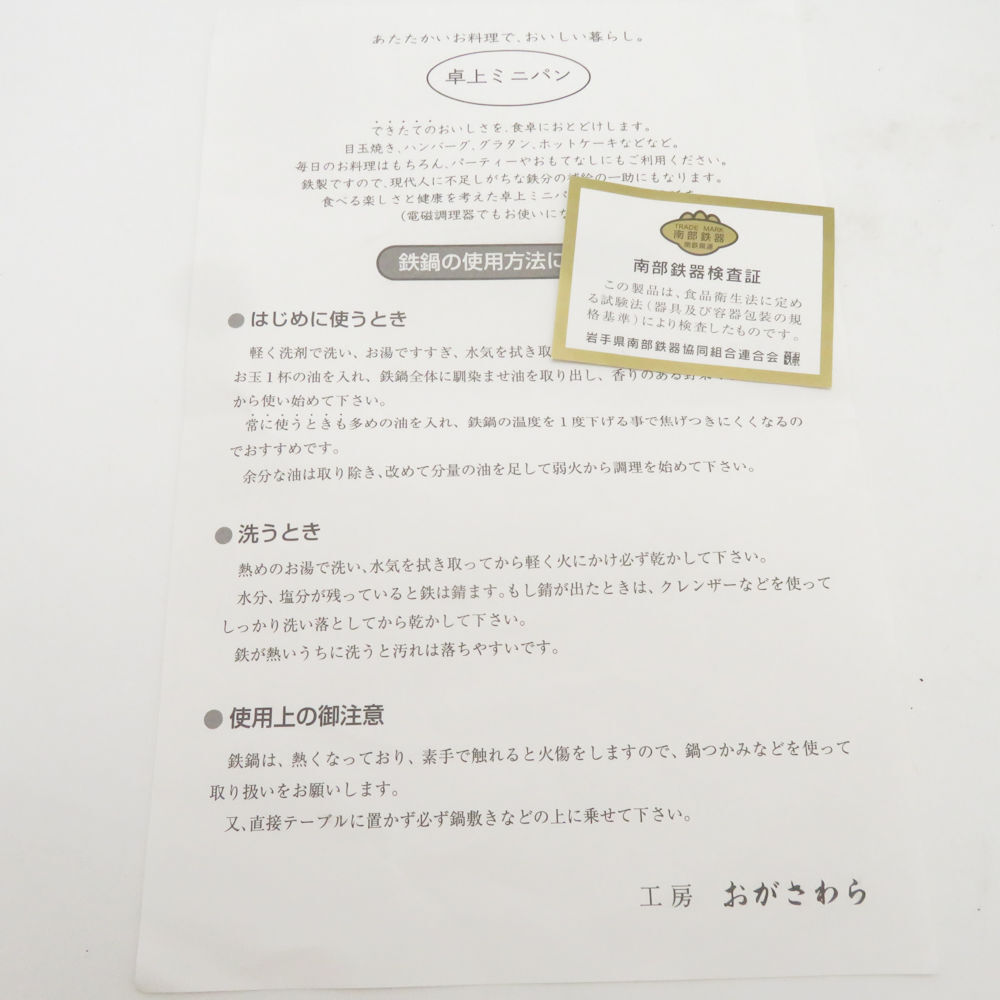 あたたかいお料理で、おいしい暮らし。
卓上ミニパン
できたてのおいしさを、食卓におとどけします。
目玉焼き、ハンバーグ、グラタン、ホットケーキなどなど。
毎日のお料理はもちろん、パーティーやおもてなしにもご利用ください。
鉄製ですので、現代人に不足しがちな鉄分の補給の一助にもなります。
食べる楽しさと健康を考えた卓上ミニパ
(電磁調理器でもお使いにな
鉄鍋の使用方法に
TRADE MARK
南部鉄器
南部鉄器検査証
この製品は、食品衛生法に定め
る試験法(器具及び容器包装の規
格基準)により検査したものです。
岩手県南部鉄器協同組合連合会
●はじめに使うとき
軽く洗剤で洗い、お湯ですすぎ、水気を拭き取
お玉1杯の油を入れ、鉄鍋全体に馴染ませ油を取り出し、香りのある野菜
から使い始めて下さい。
常に使うときも多めの油を入れ、鉄鍋の温度を1度下げる事で焦げつきにくくなるの
でおすすめです。
余分な油は取り除き、改めて分量の油を足して弱火から調理を始めて下さい。
●洗うとき
熱めのお湯で洗い、水気を拭き取ってから軽く火にかけ必ず乾かして下さい。
水分、塩分が残っていると鉄は錆ます。もし錆が出たときは、クレンザーなどを使って
しっかり洗い落としてから乾かして下さい。
鉄が熱いうちに洗うと汚れは落ちやすいです。
●使用上の御注意
鉄鍋は、熱くなっており、素手で触れると火傷をしますので、鍋つかみなどを使って
取り扱いをお願いします。
又、直接テーブルに置かず必ず鍋敷きなどの上に乗せて下さい。
工房 おがさわら